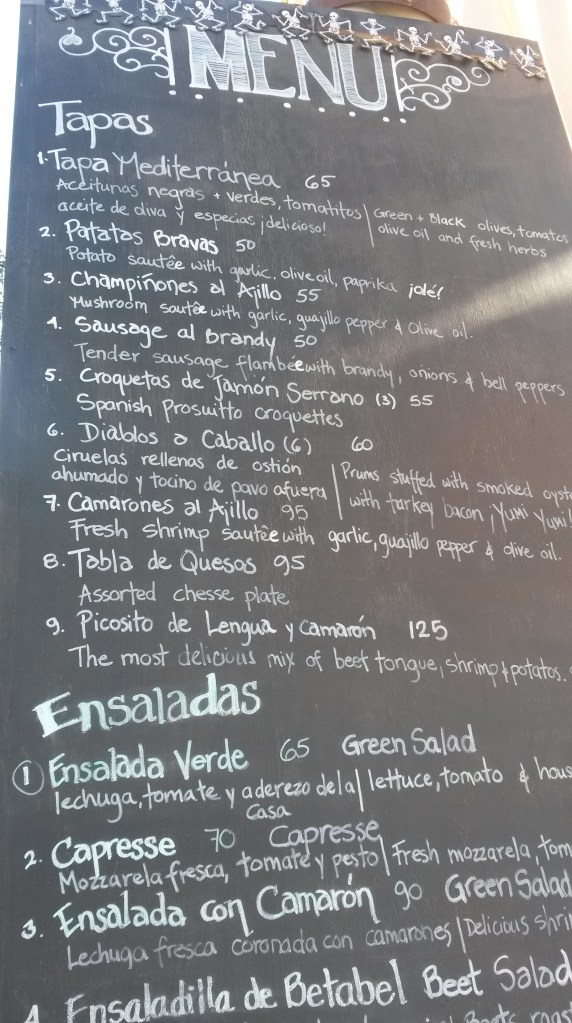 MENU
Tapas
1. Tapa Mediterránea 65
Aceitunas negras + verdes, tomatitos | Green + Black olives, tomatos
aceite de oliva y especias ¡delicioso! | olive oil and fresh herbs
2. Patatas Bravas 50
Potato sautêe with garlic, olive oil, paprika ¡olé!
3. Champiñones al Ajillo 55
Mushroom sautêe with garlic, guajillo pepper & Olive oil.
4. Sausage al Brandy 50
Tender sausage flambêe with brandy, onions & bell peppers
5. Croquetas de Jamón Serrano (3) 55
Spanish Prosuitto croquettes
6. Diablos a Caballo (6) 60
Ciruelas rellenas de ostión | Prums stuffed with smoked oyst
ahumado y tocino de pavo afuera | with turkey bacon, ¡Yumi Yumi!
7. Camarones al Ajillo 95
Fresh shrimp sautêe with garlic, guajillo pepper & olive oil.
8. Tabla de Quesos 95
Assorted chesse plate
9. Picosito de Lengua y Camarón 125
The most delicious mix of beef tongue, shrimp & potatos.
Ensaladas
1 Ensalada Verde 65 Green Salad
lechuga, tomate y aderezo de la | lettuce, tomato & hous
Casa
2. Capresse 70 Capresse
Mozzarela fresca, tomate y pesto | Fresh mozzarela, tom
3. Ensalada con Camarón 90 Green Salad
Lechuga fresca coronada con camarones | Delicious shri
4 Ensaladilla de Betabel Beet Salad